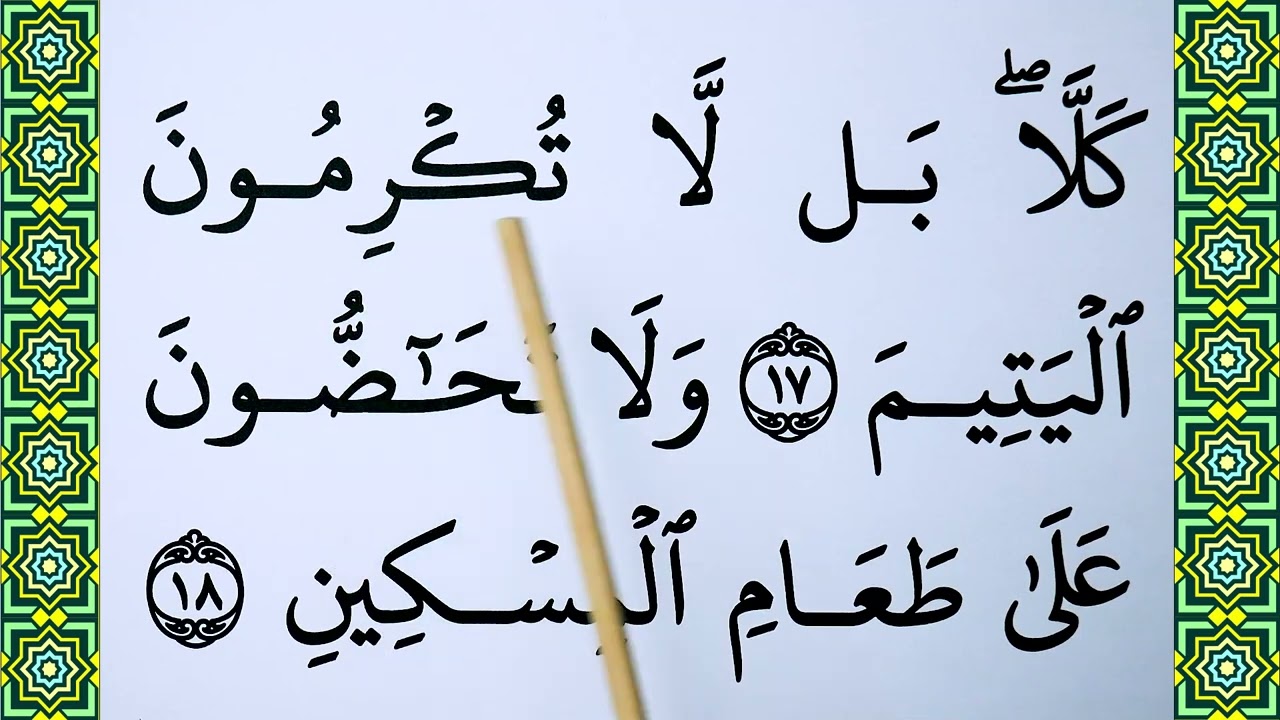 كَلَّاۖ بَل لَّا تُكْرِمُونَ
ٱلْيَتِيمَ ١٧ وَلَا تَحَـٰٓضُّونَ
عَلَىٰ طَعَامِ ٱلْمِسْكِينِ ١٨